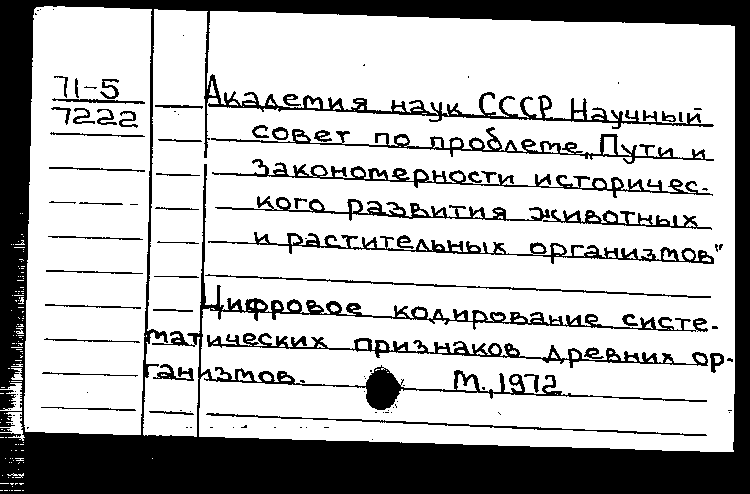 71-5
7222
Академия наук СССР Научный
совет по проблеме „Пути и
закономерности историчес-
кого развития животных
и растительных организмов"
Цифровое кодирование систе-
матических признаков древних ор-
ганизмов. М., 1972.